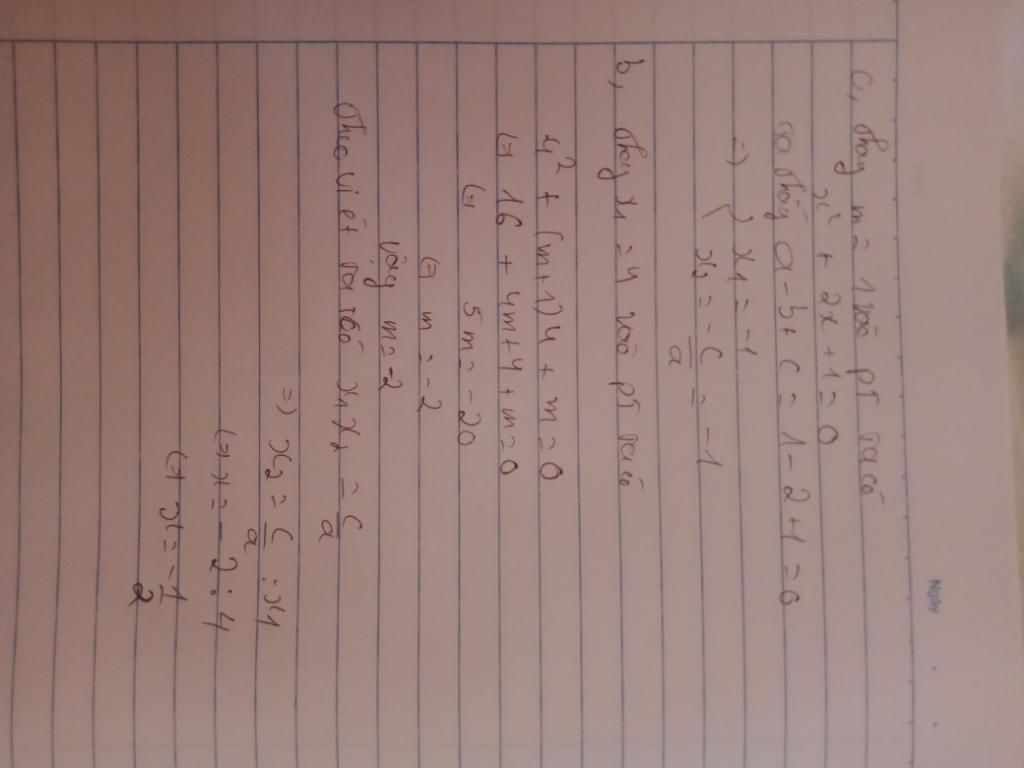 Ngày
c, thay m = 1 vào pt ta có
x² + 2x + 1 = 0
ta thấy a - b + c = 1 - 2 + 1 = 0
=> { x1 = -1
x2 = -c/a = -1
b, thay x1 = 4 vào pt ta có
4² + (m+1)4 + m = 0
(=) 16 + 4m + 4 + m = 0
(=) 5m = -20
(=) m = -2
vậy m = -2
theo viét ta có x1x2 = c/a
=) x2 = c/a : x1
(=) x = -2 : 4
(=) x = -1/2